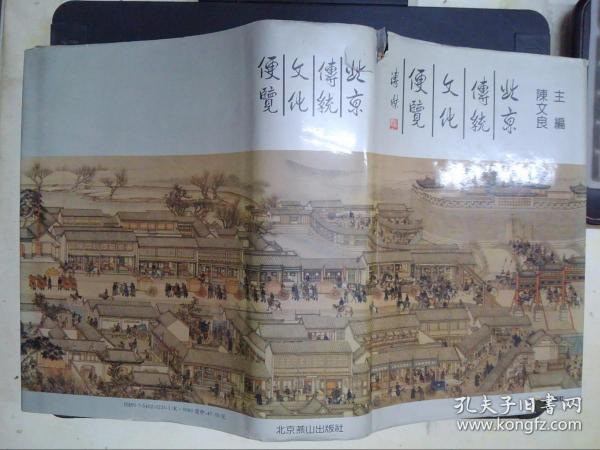 北京
傳統
文化
便覽
北京
傳統
文化
便覽
溥傑
主編
陳文良
北京燕山出版社
孔夫子旧书网
www.kongfz.com